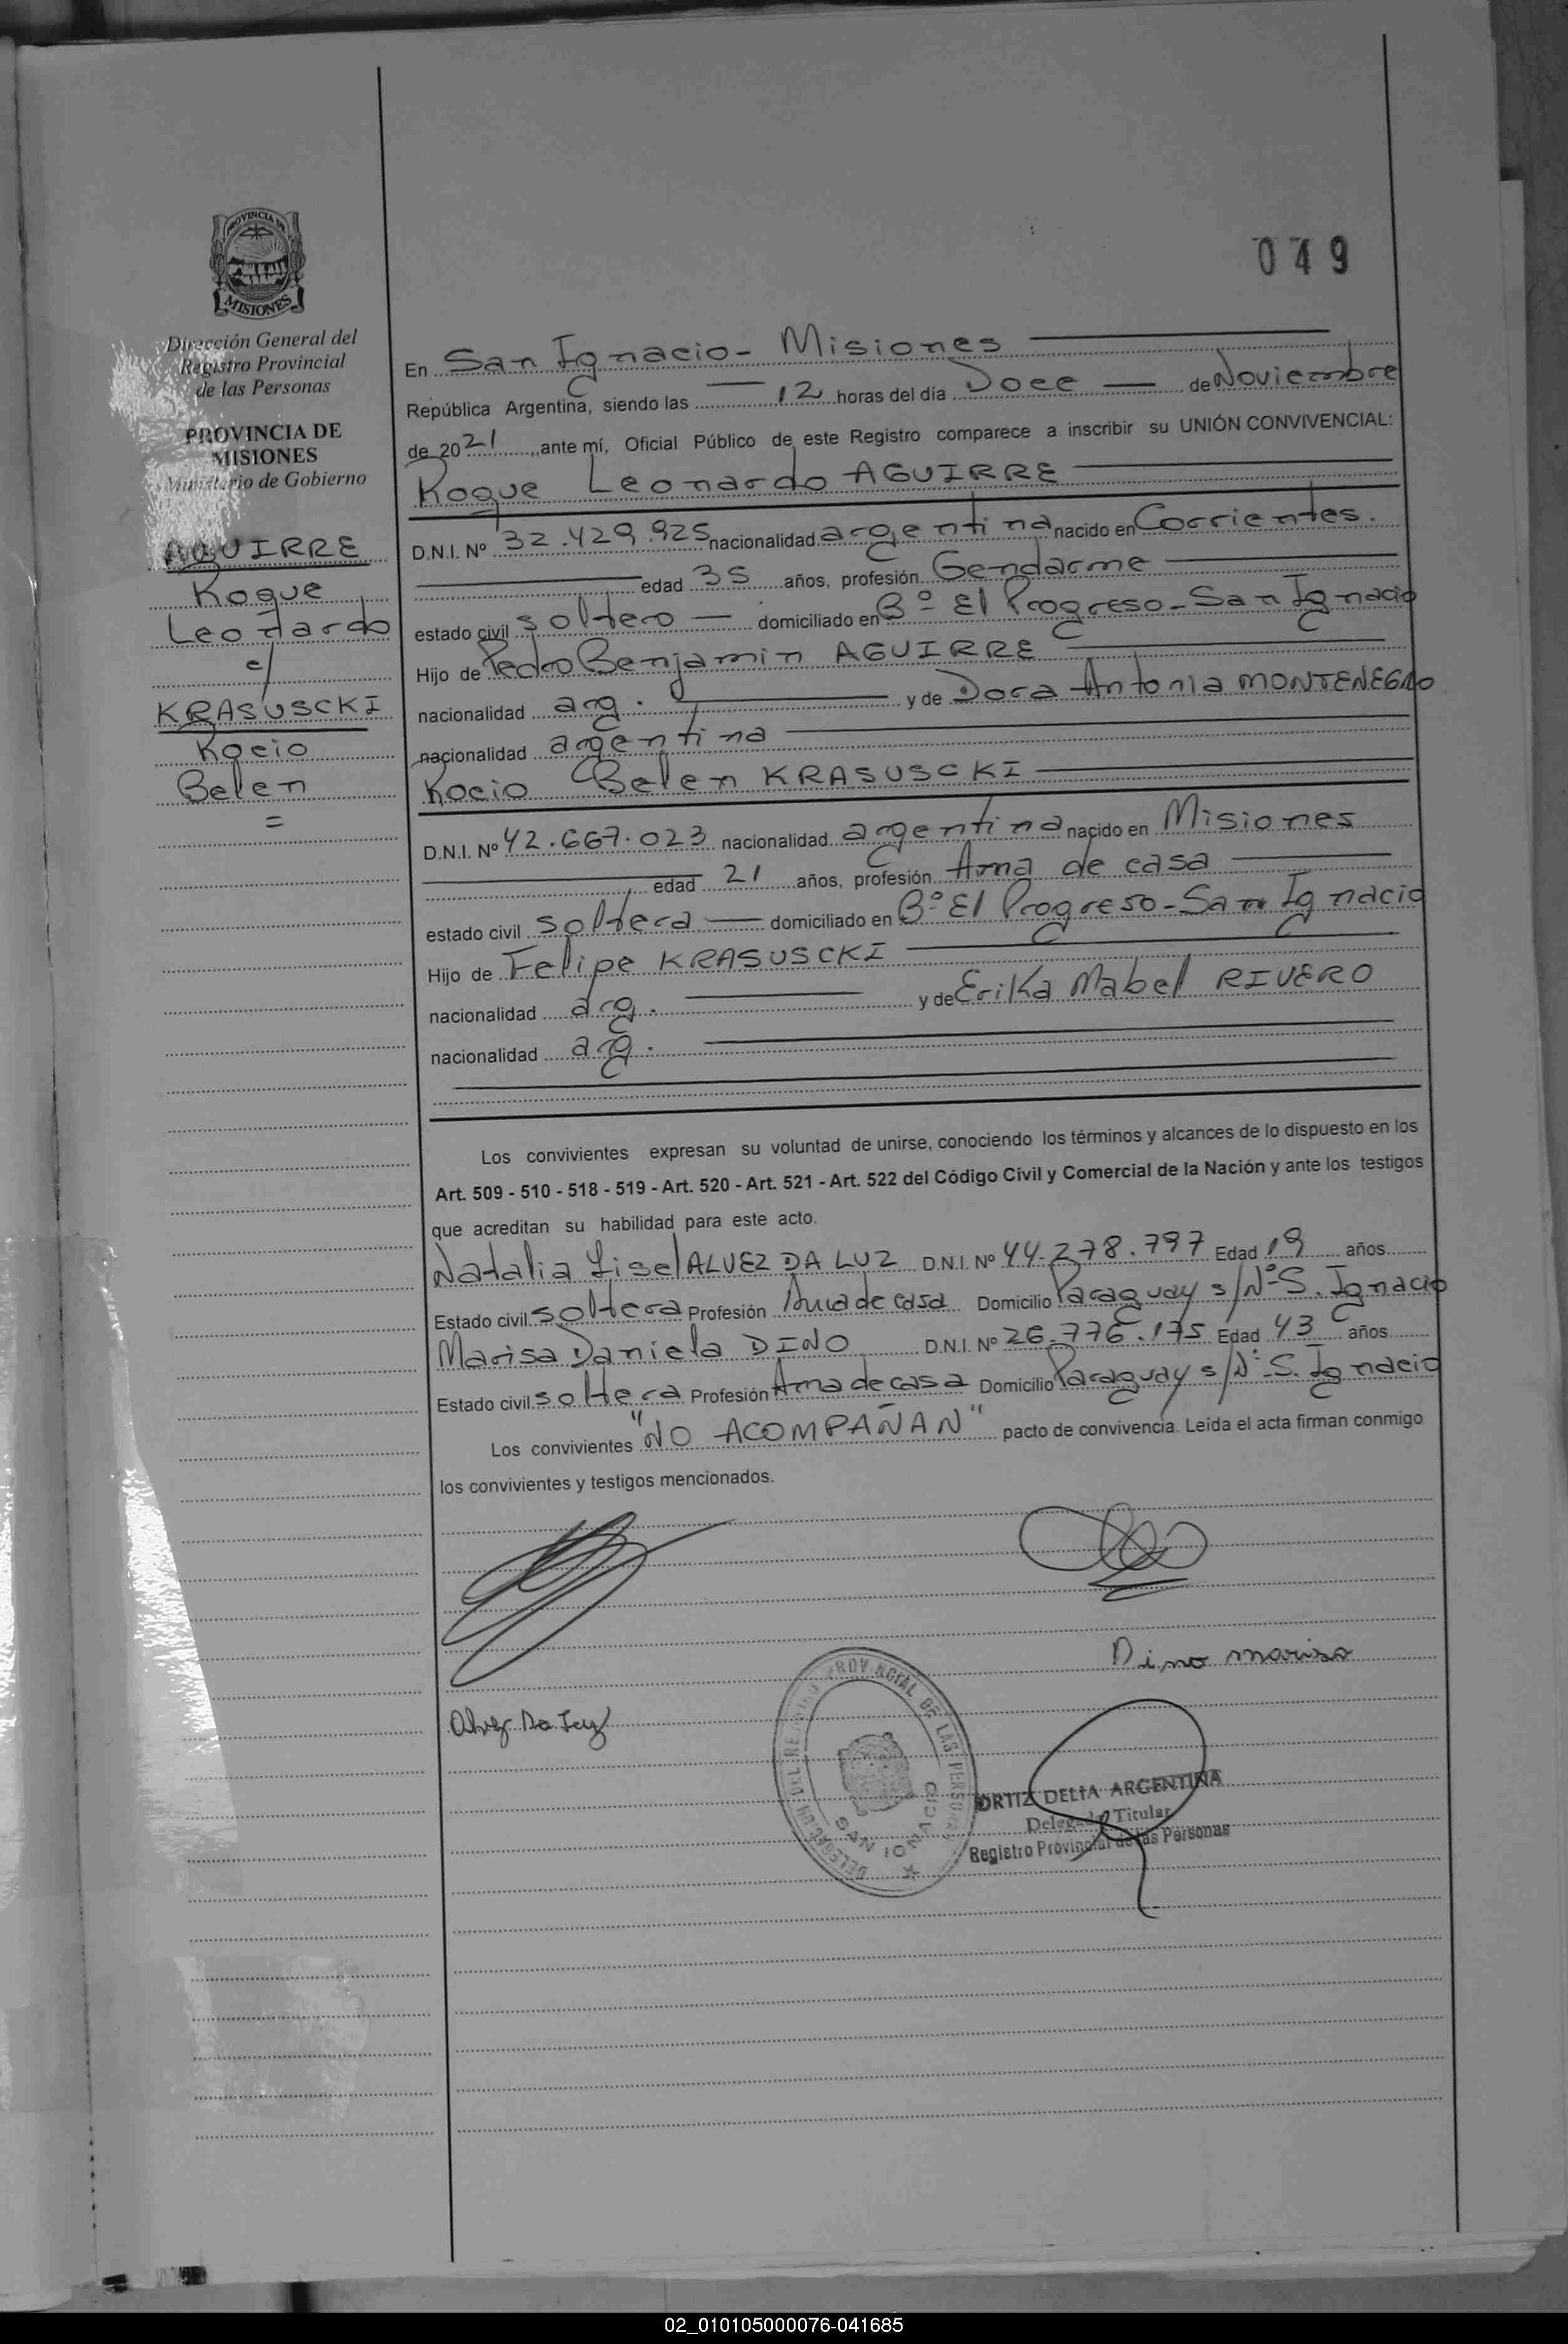 049
PROVINCIA DE
MISIONES
Dirección General del
Registro Provincial
de las Personas
PROVINCIA DE
MISIONES
Ministerio de Gobierno
AGUIRRE
Roque
Leonardo
c/
KRASUSCKI
Rocio
Belen
=
En San Ignacio - Misiones
República Argentina, siendo las 12 horas del día Doce de Noviembre
de 2021, ante mí, Oficial Público de este Registro comparece a inscribir su UNIÓN CONVIVENCIAL:
Roque Leonardo AGUIRRE
D.N.I. Nº 32.429.925 nacionalidad argentina nacido en Corrientes.
edad 35 años, profesión Gendarme
estado civil soltero domiciliado en Bº El Progreso - San Ignacio
Hijo de Pedro Benjamin AGUIRRE
nacionalidad arg. y de Dora Antonia MONTENEGRO
nacionalidad argentina
Rocio Belen KRASUSCKI
D.N.I. Nº 42.667.023 nacionalidad argentina nacido en Misiones
edad 21 años, profesión Ama de casa
estado civil soltera domiciliado en Bº El Progreso - San Ignacio
Hijo de Felipe KRASUSCKI
nacionalidad arg. y de Erika Mabel RIVERO
nacionalidad arg.
Los convivientes expresan su voluntad de unirse, conociendo los términos y alcances de lo dispuesto en los
Art. 509 - 510 - 518 - 519 - Art. 520 - Art. 521 - Art. 522 del Código Civil y Comercial de la Nación y ante los testigos
que acreditan su habilidad para este acto.
Natalia Lisel ALVEZ DA LUZ D.N.I. Nº 44.278.797 Edad 19 años
Estado civil soltera Profesión Ama de casa Domicilio Paraguay s/Nº - S. Ignacio
Marisa Daniela DINO D.N.I. Nº 26.776.175 Edad 43 años
Estado civil soltera Profesión Ama de casa Domicilio Paraguay s/Nº - S. Ignacio
Los convivientes "NO ACOMPAÑAN" pacto de convivencia. Leída el acta firman conmigo
los convivientes y testigos mencionados.
Dino Marisa
DELEGACION DEL REGISTRO PROVINCIAL DE LAS PERSONAS
SAN IGNACIO
ORTIZ DELIA ARGENTINA
Delegada Titular
Registro Provincial de las Personas
02_010105000076-041685